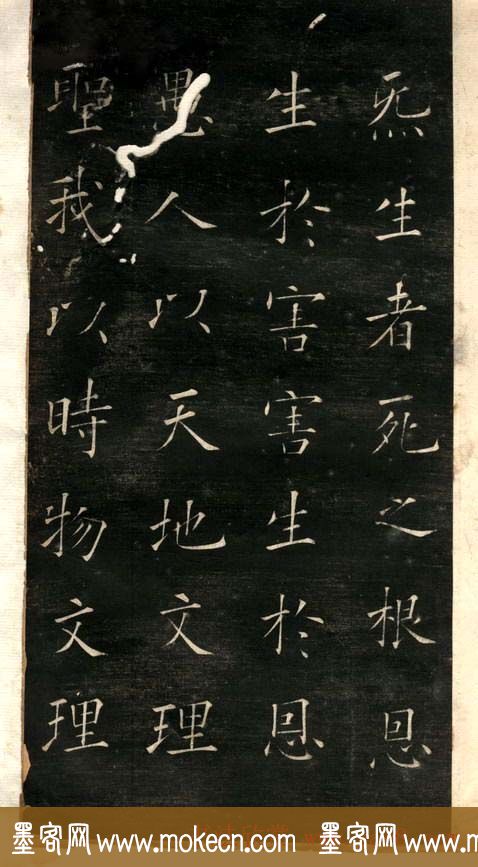 炁生者死之根恩
生於害害生於恩
愚人以天地文理
聖我以時物文理
墨客网 www.mokecn.com 墨客网 www.mokecn.com